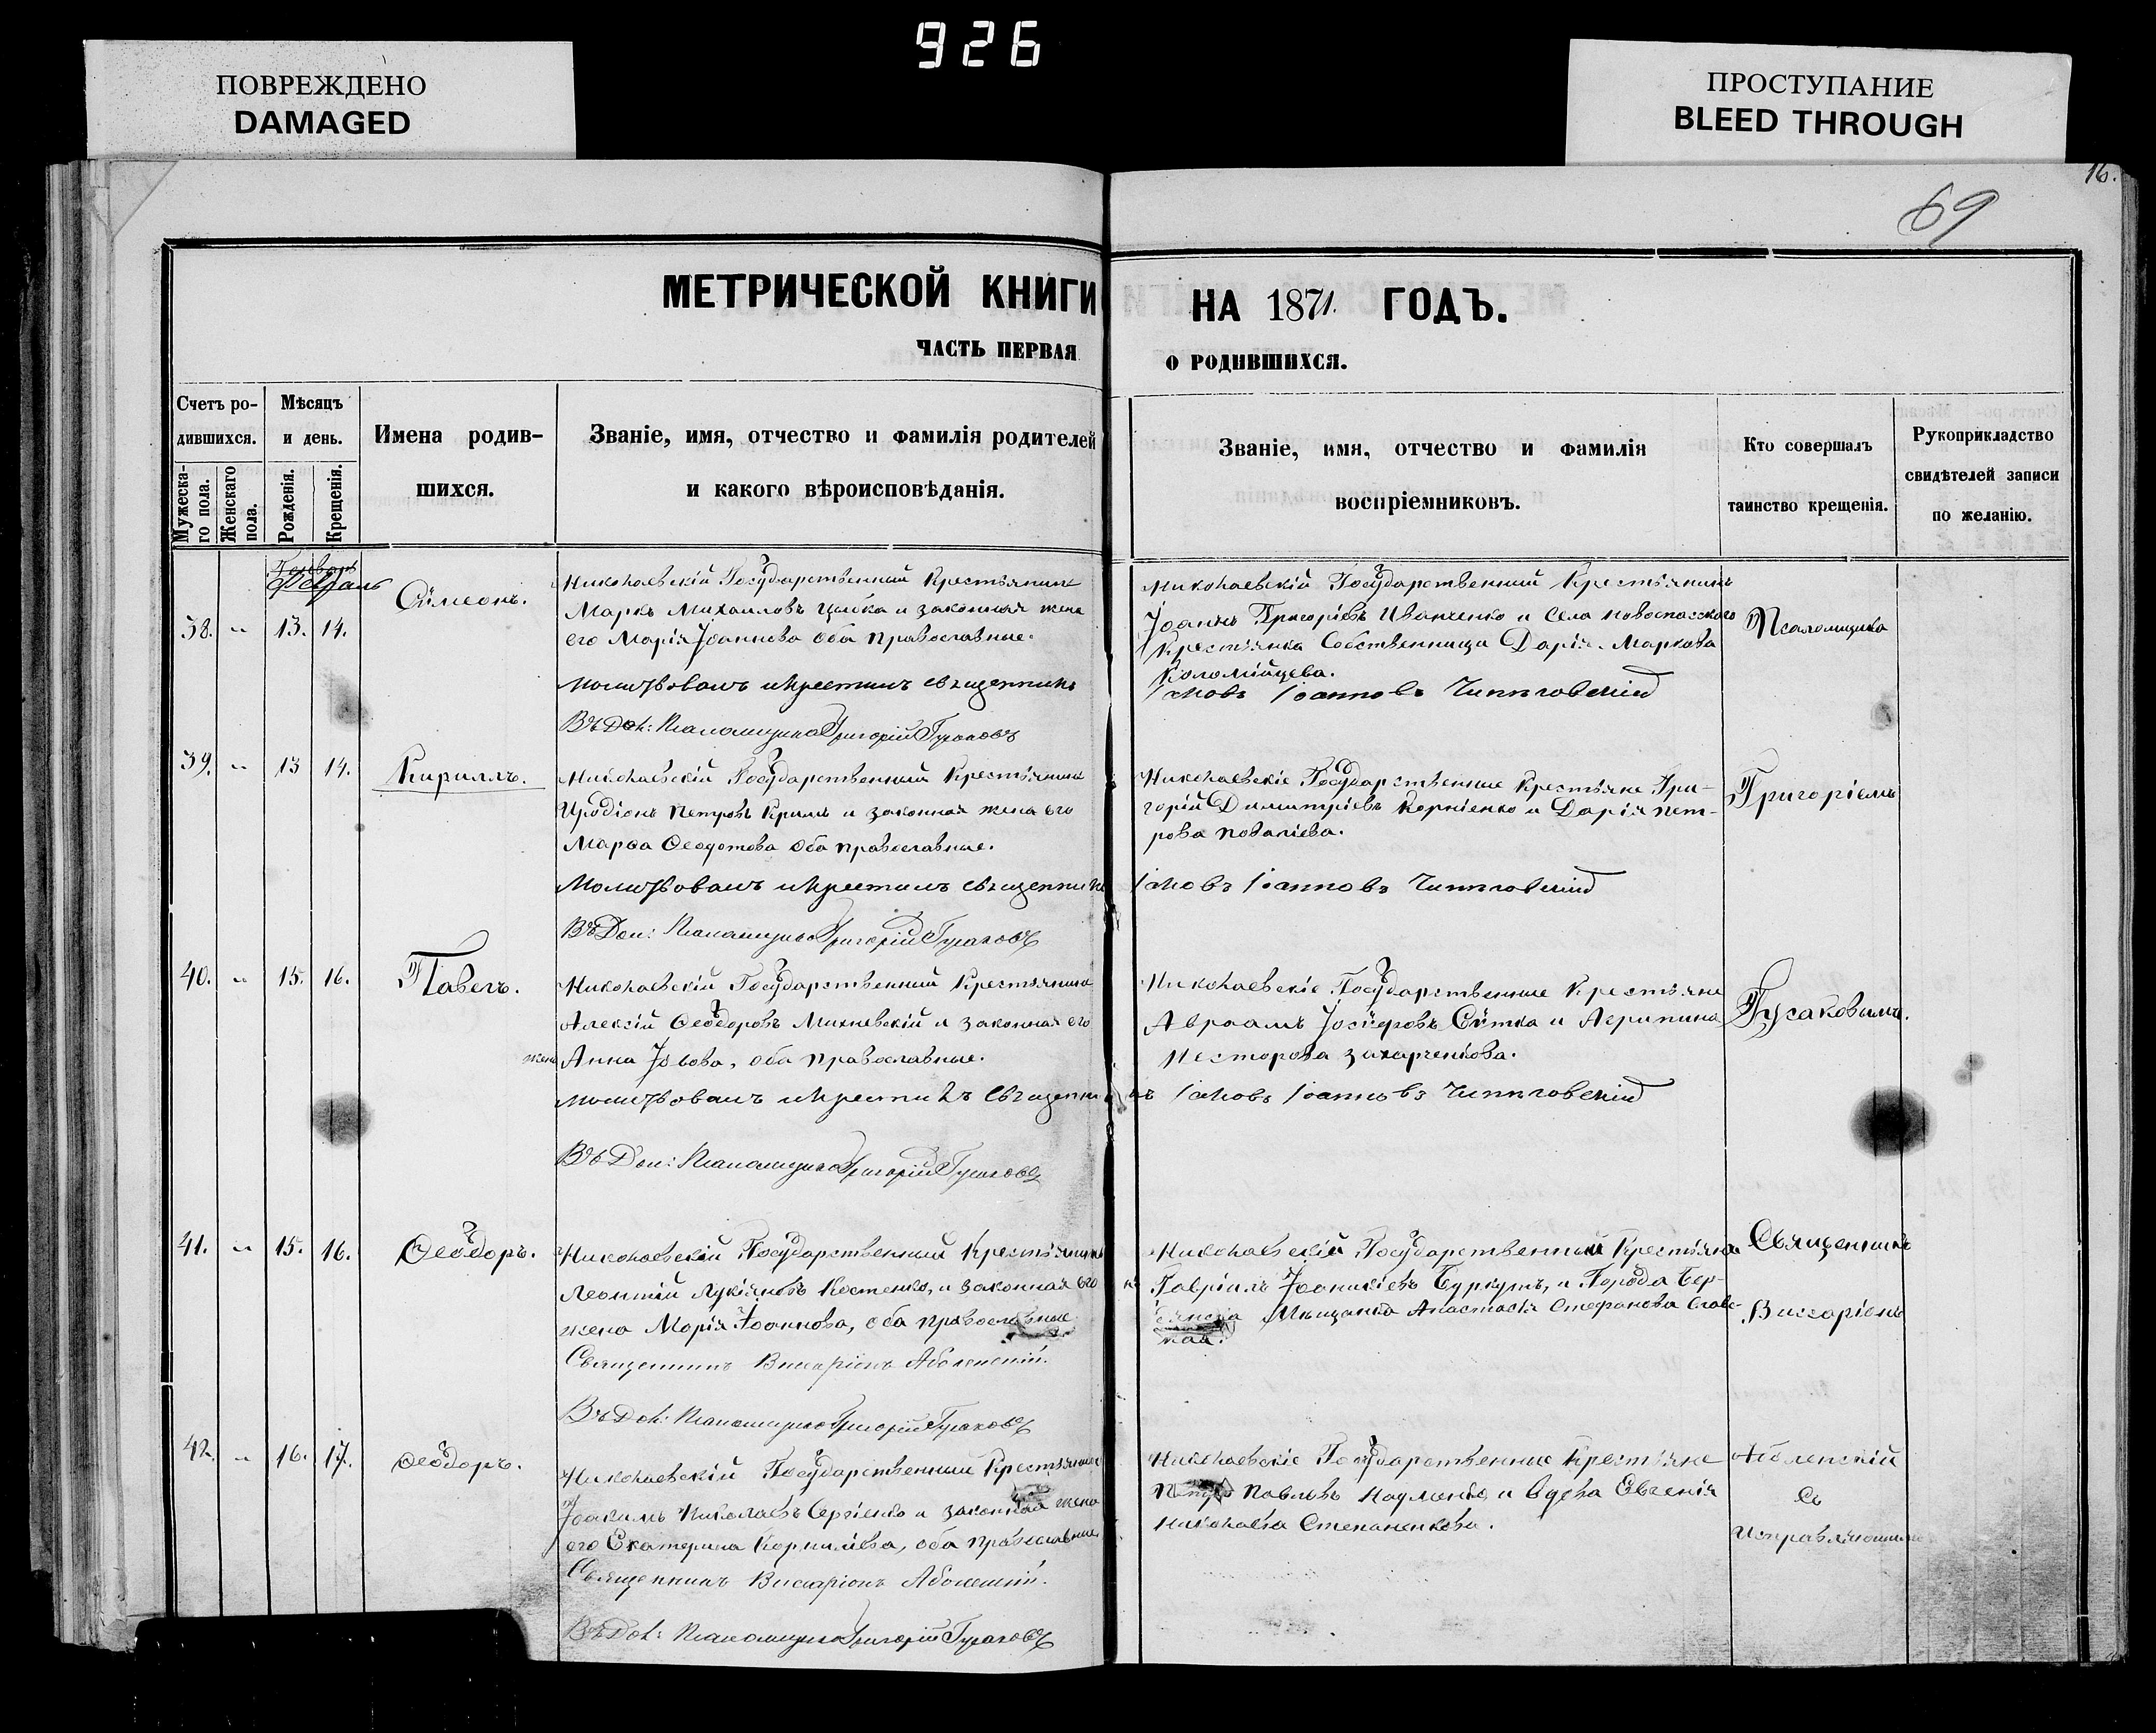 926
ПОВРЕЖДЕНО
DAMAGED
ПРОСТУПАНИЕ
BLEED THROUGH
16.
69
МЕТРИЧЕСКОЙ КНИГИ
НА 1871. ГОДЪ.
ЧАСТЬ ПЕРВАЯ
О РОДИВШИХСЯ.
Счетъ ро-
дившихся.
Мужеска-
го пола.
Женскаго
пола.
Мѣсяцъ
и день.
Рожденія.
Крещенія.
Имена родив-
шихся.
Званіе, имя, отчество и фамилія родителей
и какого вѣроисповѣданія.
Званіе, имя, отчество и фамилія
воспріемниковъ.
Кто совершалъ
таинство крещенія.
Рукоприкладство
свидѣтелей записи
по желанію.
Февраль
38. " 13. 14.
Сѵмеонъ.
Николаевскій Государственный Крестьянинъ
Маркъ Михаиловъ Цыбка и законная жена
его Марія Іоаннова оба православные.
Молитвовалъ и крестилъ священникъ
Іаковъ Іоанновъ
Псаломщикъ Григорій Гусаковъ
Николаевскій Государственный Крестьянинъ
Іоаннъ Григоріевъ Иванченко и Села Новоспасскаго
Крестьянка Собственница Дарія Маркова
Коломійцева.
Псаломщика
39. " 13 14.
Кириллъ.
Николаевскій Государственный Крестьянинъ
Иродіонъ Петровъ Крим и законная жена его
Марѳа Ѳеодотова оба православные.
Молитвовалъ и крестилъ священникъ
Іаковъ Іоанновъ
Псаломщикъ Григорій Гусаковъ
Николаевскіе Государственные Крестьяне Гри-
горій Димитріевъ Корніенко и Дарія Пет-
рова
Григоріемъ
40. " 15. 16.
Павелъ.
Николаевскій Государственный Крестьянинъ
Алексій Ѳеодоровъ Михневскій и законная его
жена Анна Іовова, оба православные.
Молитвовалъ и крестилъ Священникъ
Іаковъ Іоанновъ
Псаломщикъ Григорій Гусаковъ
Николаевскіе Государственные Крестьяне
Авраамъ Іосифовъ Сытка и Агрипина
Несторова Захарченкова.
Гусаковымъ.
41. " 15. 16.
Ѳеодоръ.
Николаевскій Государственный Крестьянинъ
Леонтій Лукіяновъ Костенко, и законная его
жена Марія Іоаннова, оба православные
Священникъ Виссаріонъ Аболенскій.
Псаломщикъ Григорій Гусаковъ
Николаевскій Государственный Крестьянинъ
Гавріилъ Іоаникіевъ Буркутъ, и Города Бер-
дянска Мѣщанка Анастасія Стефанова
Священникъ
Виссаріонъ
42. " 16. 17.
Ѳеодоръ.
Николаевскій Государственный Крестьянинъ
Іоакимъ Николаевъ Сергіенко и законная жена
его Екатерина Корниліева, оба православные
Священникъ Виссаріонъ Аболенскій.
Псаломщикъ Григорій Гусаковъ
Николаевскіе Государственные Крестьяне
Петръ Павловъ Науменко и вдова Евгенія
Николаева Степаненкова.
Аболенскій
Съ